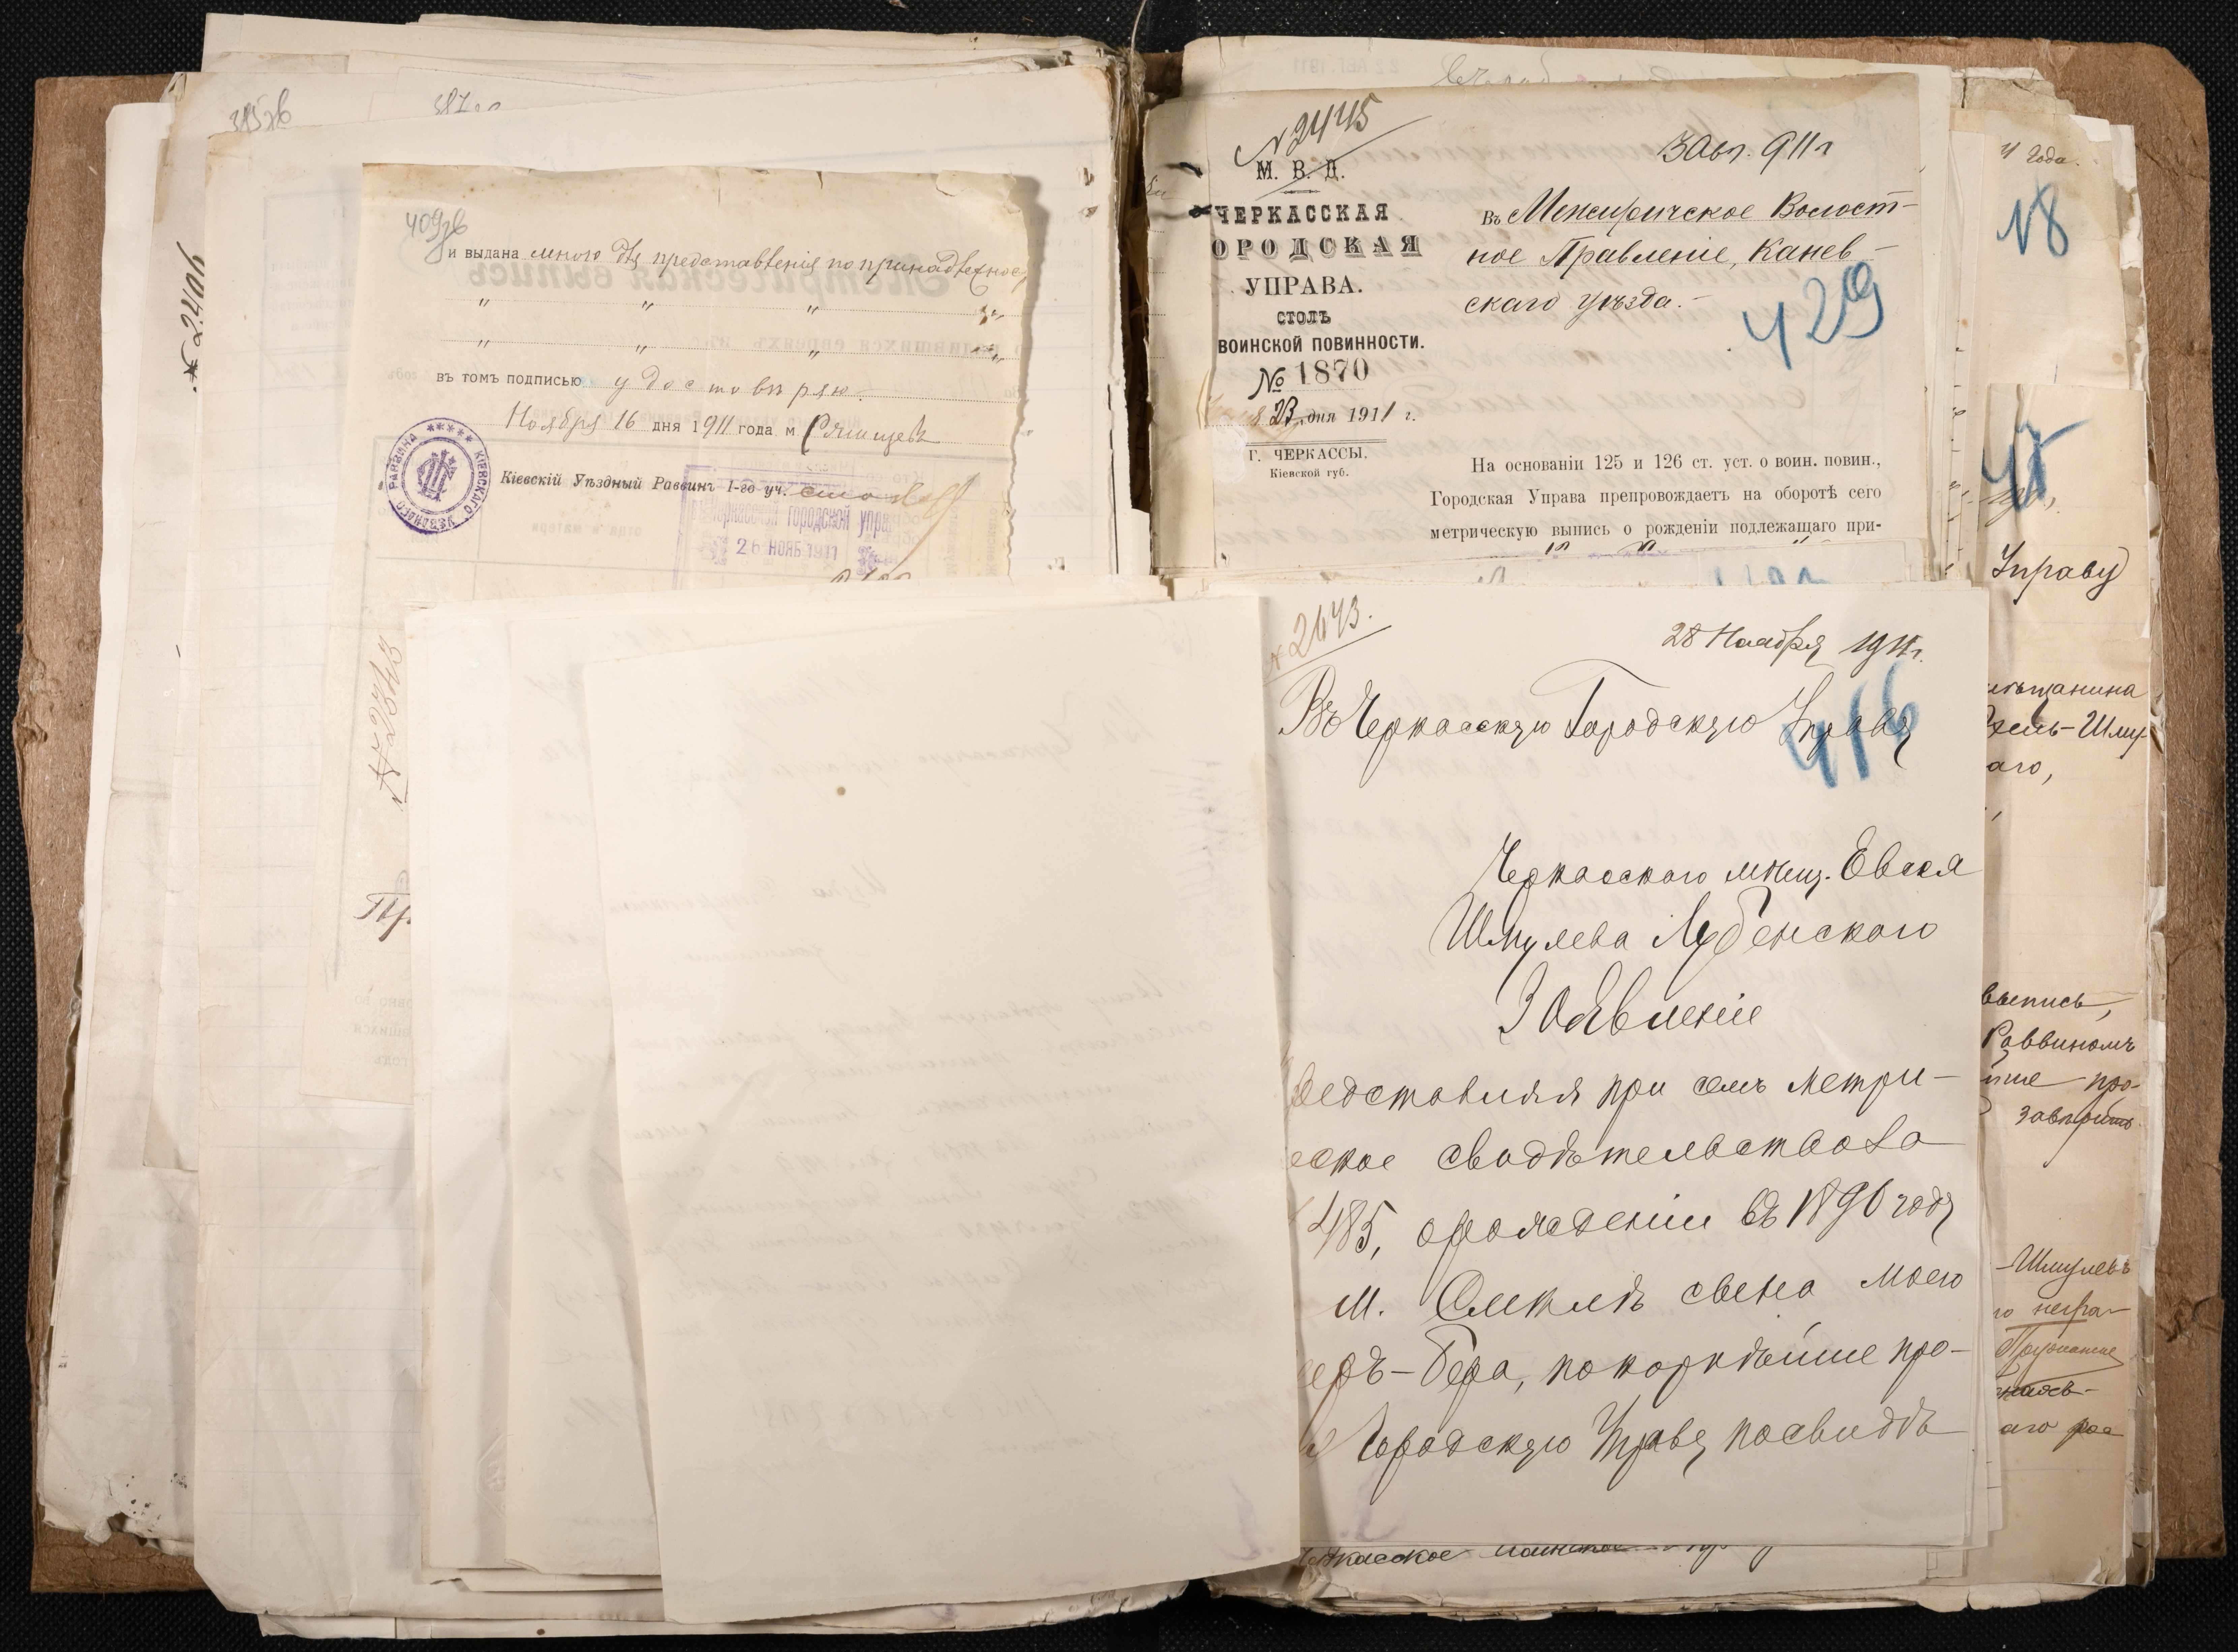 409 об
и выдана мною для представленія по принадлежнос
" " " "
" " " "
въ томъ подписью удостовѣряю.
Ноября 16 дня 1911 года м. Ржищевъ
Кіевскій Уѣздный Раввинъ 1-го уч.
КІЕВСКАГО УѢЗДНАГО РАВВИНА
Черкасской городской упра
26 НОЯБ 1911
№ 2406
№ 2343
Пр.
№ 2445
М. В. Д.
ЧЕРКАССКАЯ
ОРОДСКАЯ
УПРАВА.
СТОЛЪ
ВОИНСКОЙ ПОВИННОСТИ.
№ 1870
23 дня 1911 г.
Г. ЧЕРКАССЫ.
Кіевской губ.
3 Авг. 911 г
Въ Межиричское Волост-
ное Правленіе, Канев-
скаго уѣзда.-
429
На основаніи 125 и 126 ст. уст. о воин. повин.,
Городская Управа препровождаетъ на оборотѣ сего
метрическую выпись о рожденіи подлежащаго при-
№ 2643.
28 Ноября 1911 г.
Въ Черкасскую Городскую Управу
416
Черкасского мѣщ. Евсея
Шмулева Лубенского
Заявленіе
редставляя при семъ метри-
еское свидѣтельство за
485, о рожденіи въ 1890 году
м. Смѣлѣ сына моего
еръ-Бера, покорнѣйше про-
Городскую Управу посвидѣ
4 года.
18
Управу
ѣщанина
-Шму-
аго,
выпись,
Раввиномъ
йше про-
завѣрить
-Шмулевъ
аго рос